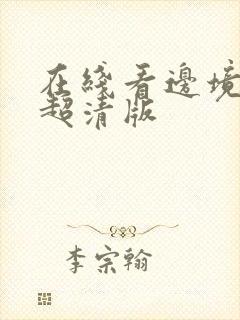 在綫看邊境
超清版
李宗翰